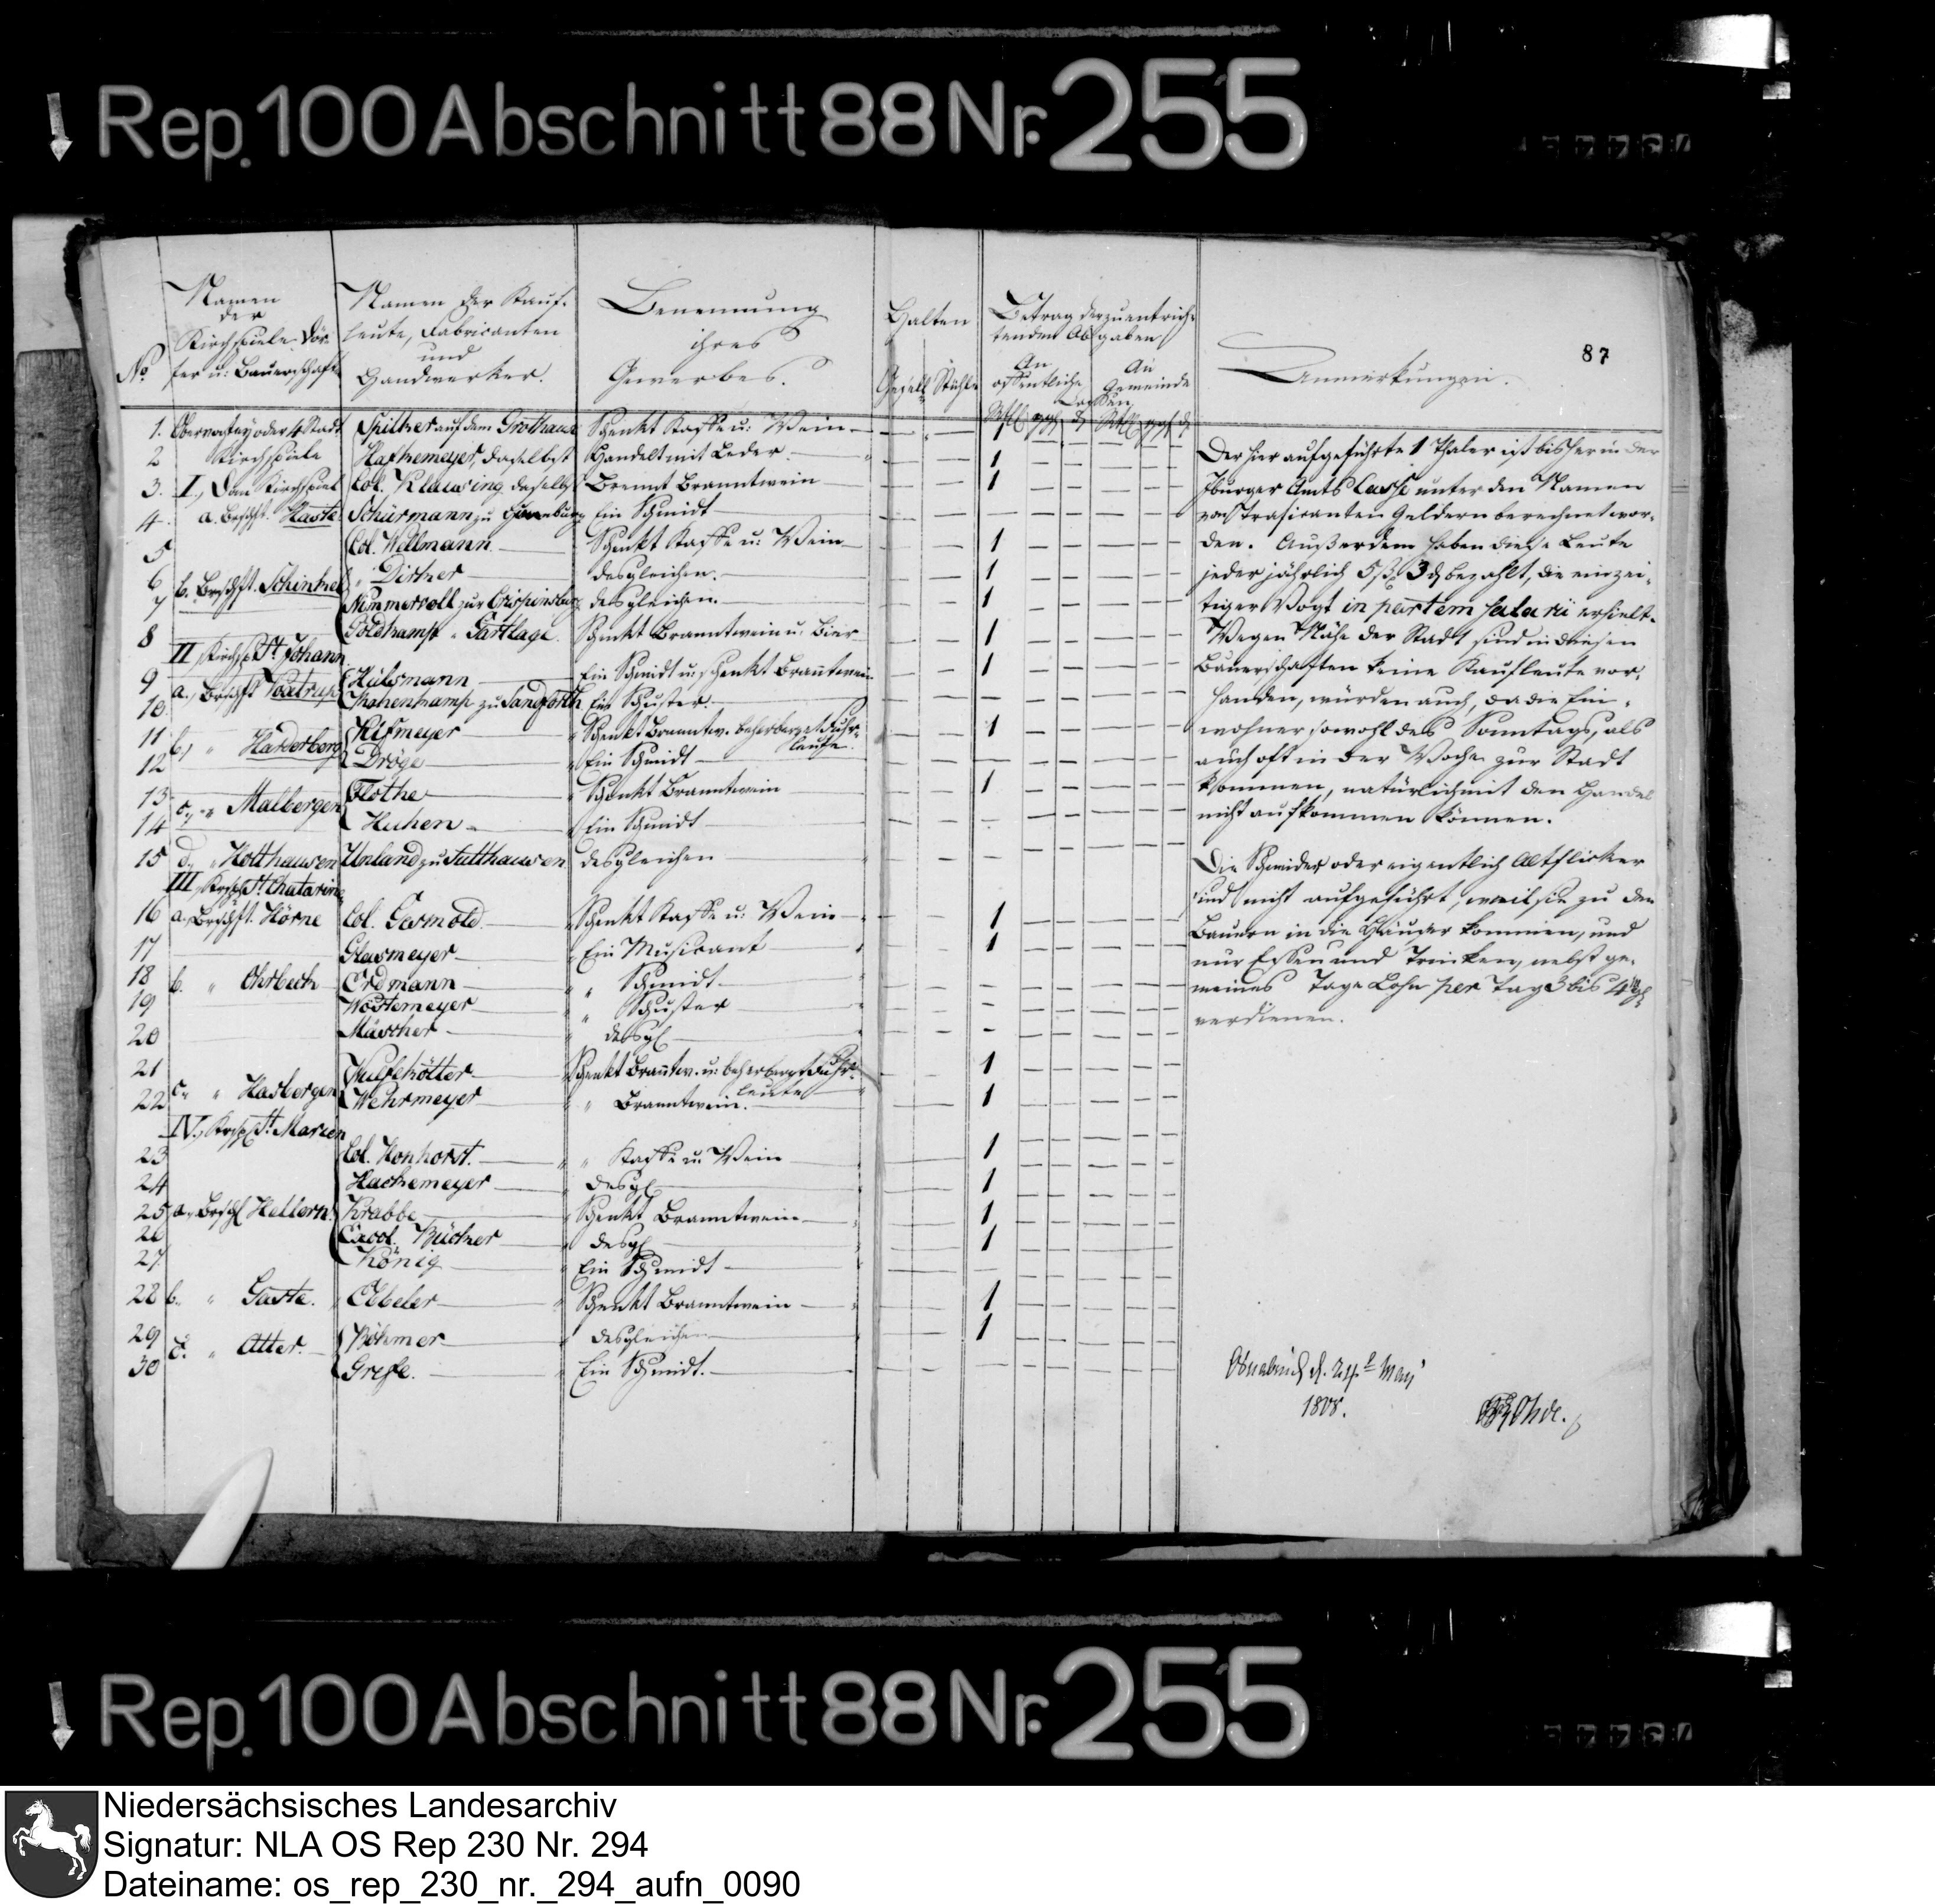 Rep. 100 Abschnitt 88 Nr. 255
87
No
Namen der Kirchspiele Dörfer u: Bauerschaften
Namen der Kaufleute, Fabricanten und Handwerker.
Benennung ihres Gewerbes.
Halten
Gesell. Stühle
Betrag der zu entrichtenden Abgaben
An öffentliche An Gemeinde Cassen
Rthlr ggl d Rthlr ggl d
Anmerkungen.
1. Obervogtey oder 4 Stadt auf dem Grothaus Schenkt Kaffe u: Wein — 1
2 Kirchspiele daselbst Handelt mit Leder — 1
3. I., Dom Kirchspiel Col. Klausing daselbst Brennt Branntwein 1
4. a. Brschft. Haste Schürmann zu Ein Schmidt —
5 Col. Wellmann Schenkt Kaffe u: Wein — 1
6 b. Brschft. Schinkel " desgleichen. 1
7 Nimmervoll zur desgleichen. 1
8 Goldkamp " Gartlage. Schenkt Branntwein u: Bier 1
II, Kirchsp. St. Johann
9 a., Brschft Voxtrup Hülsmann Ein Schmidt u: schenkt Branntwein 1
10 zu Sandforth Ein Schuster. —
11 b, " Harderberg Schenkt Branntw. beherberget Fuhrleute. 1
12 Dröge Ein Schmidt —
13 c., " Malbergen Flothe Schenkt Branntwein 1
14 Ein Schmidt —
15 d., " Holthausen Unland zu Sutthausen desgleichen —
III, Krchsp St. Chatarine
16 a. Brschft. Hörne Col. Gesmold Schenkt Kaffe u: Wein — 1
17 Glasmeyer Ein Musicant 1
18 b. " Ohrbeck Erdmann " Schmidt —
19 Wostemeyer " Schuster —
20 Müscher desgl —
21 Wulfekötter Schenkt Brantw. u: beherbergt Fuhrleute 1
22 c. " Hasbergen Wehrmeyer " Branntwein. 1
IV., Krchsp St. Marien
23 Col. Honhorst. " Kaffe u: Wein 1
24 Hackemeyer desgl 1
25 a., Brschf Hellern Krabbe Schenkt Branntwein 1
26 desgl 1
27 König Ein Schmidt —
28 b. " Gaste. Ebbeler Schenkt Branntwein — 1
29 c. " Atter. Böhmer desgleichen 1
30 Grefe. Ein Schmidt. —
Der hier aufgeführte 1 Thaler ist bisher in der
Iburger Amts Casse unter den Namen
von Trasicanten Geldern berechnet wor-
den. Außerdem haben diese Leute
jeder jährlich 5 ß 3 d bezahlt, die einzei-
tiger Vogt in partem salarii erhielt.
Wegen Nähe der Stadt sind in diesen
Bauerschaften keine Kaufleute vor-
handen, würden auch, da die Ein-
wohner sowohl des Sonntags, als
auch oft in der Woche zur Stadt
kommen, natürlich mit den Handel
nicht aufkommen können.
Die Schneider oder eigentlich Altflicker
sind nicht aufgeführt, weil sie zu den
Bauern in die Häuser kommen, und
nur Essen und Trinken, nebst ge-
meines Tage Lohn per Tag 3 bis 4 ggl
verdienen.
Osnabrück d. May
1808.
Rep. 100 Abschnitt 88 Nr. 255
Niedersächsisches Landesarchiv
Signatur: NLA OS Rep 230 Nr. 294
Dateiname: os_rep_230_nr._294_aufn_0090